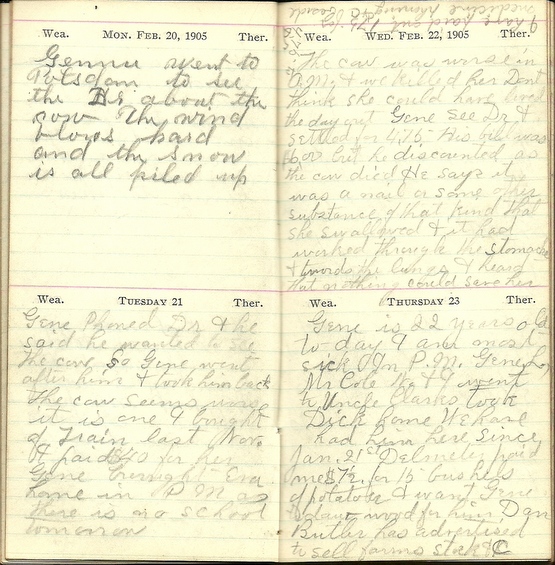 Wea. MON. FEB. 20, 1905 Ther.
Gennie went to
Potsdam to see
the Dr about the
cow The wind
blows hard
and the snow
is all piled up
Wea. TUESDAY 21 Ther.
Gene Phoned Dr & he
said he wanted to see
the cow So Gene went
after him & took him back
The cow seems worse
it is one I bought
of Train last Nov.
I paid for her
Gene brought Eva
home in P.M as
there is no school
tomorrow
I have paid out
medicine
Wea. WED. FEB. 22, 1905 Ther.
The cow was worse in
A.M. & we killed her Dont
think she could have lived
the day out Gene see Dr &
settled for 4.75 His bill was
6.00 but he discounted as
the cow died He says it
was a nail or some other
substance of that kind that
she swallowed & it had
worked through the stomache
& towards the lungs & heard
that nothing could save her
Wea. THURSDAY 23 Ther.
Gene is 22 years old
to-day I am most
sick In P.M. Gene
Mr Cole & I went
to Uncle Clarks took
Dick home We have
had him here since
Jan. 21st Delmeter paid
me for 15 bushels
of potatoes & want Gene
to draw wood for him Dan
Butler has advertised
to sell farms stock &C